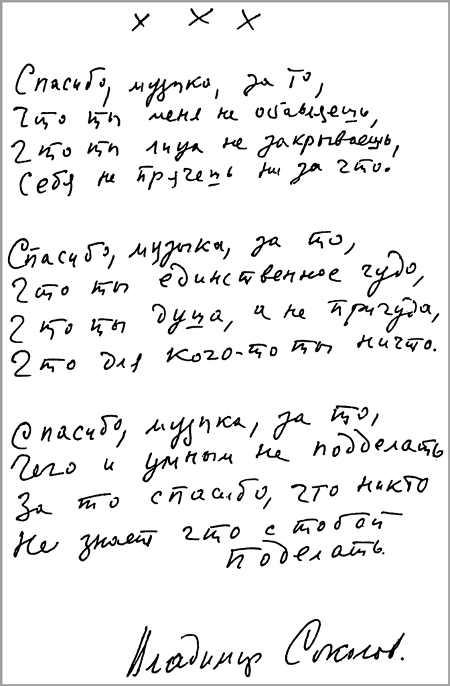 х х х
Спасибо, музыка, за то,
Что ты меня не обманешь,
Что ты лица не закрываешь,
Себя не прячешь ни за что.
Спасибо, музыка, за то,
Что ты единственное чудо,
Что ты душа, а не причуда,
Что для кого-то ты ничто.
Спасибо, музыка, за то,
Чего и умным не подделать
За то спасибо, что никто
Не знает что с тобой
поделать.
Владимир Соколов.